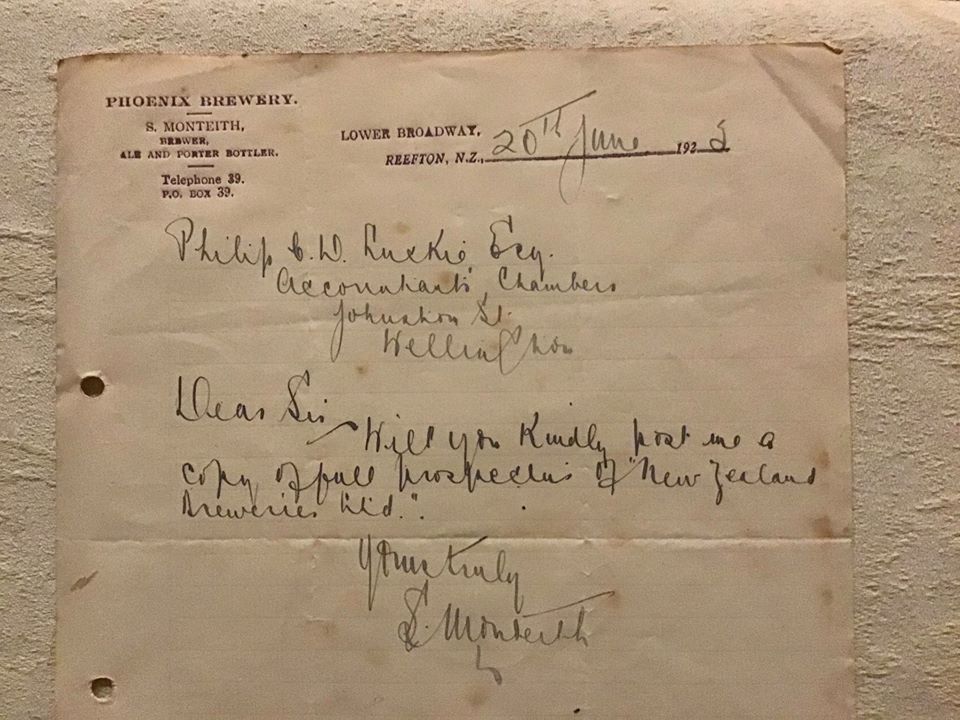 PHOENIX BREWERY.
S. MONTEITH,
BREWER,
ALE AND PORTER BOTTLER.
Telephone 39.
P.O. BOX 39.
LOWER BROADWAY,
REEFTON, N.Z., 20th June 1923
Philip C. D. Luxkie Esq.
Accountants Chambers
Johnston St.
Wellington
Dear Sir
Will you Kindly post me a
copy of full prospectus of "New Zealand
Breweries Ltd.".
Yours truly
S. Monteith